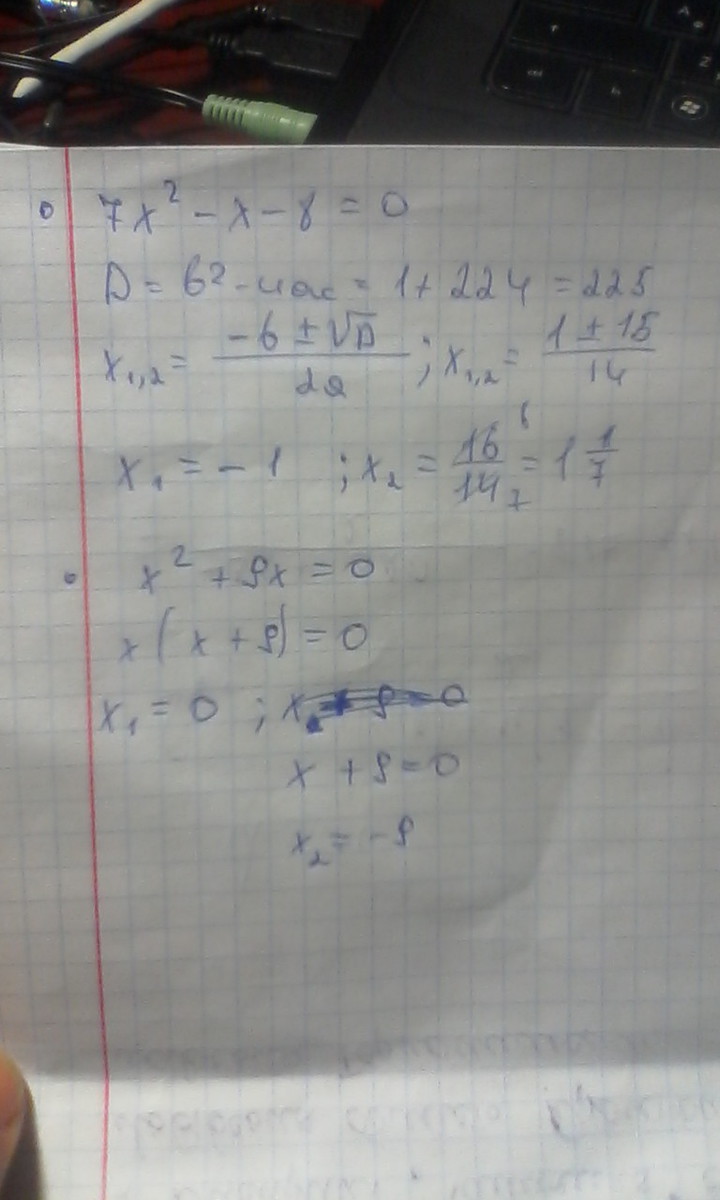 7x² - x - 8 = 0
D = b² - 4ac = 1 + 224 = 225
x₁,₂ = (-b ± √D)/2a ; x₁,₂ = (1 ± 15)/14
x₁ = -1 ; x₂ = 16/14 = 1 1/7
x² + 9x = 0
x(x + 9) = 0
x₁ = 0 ; x
x + 9 = 0
x₂ = -9